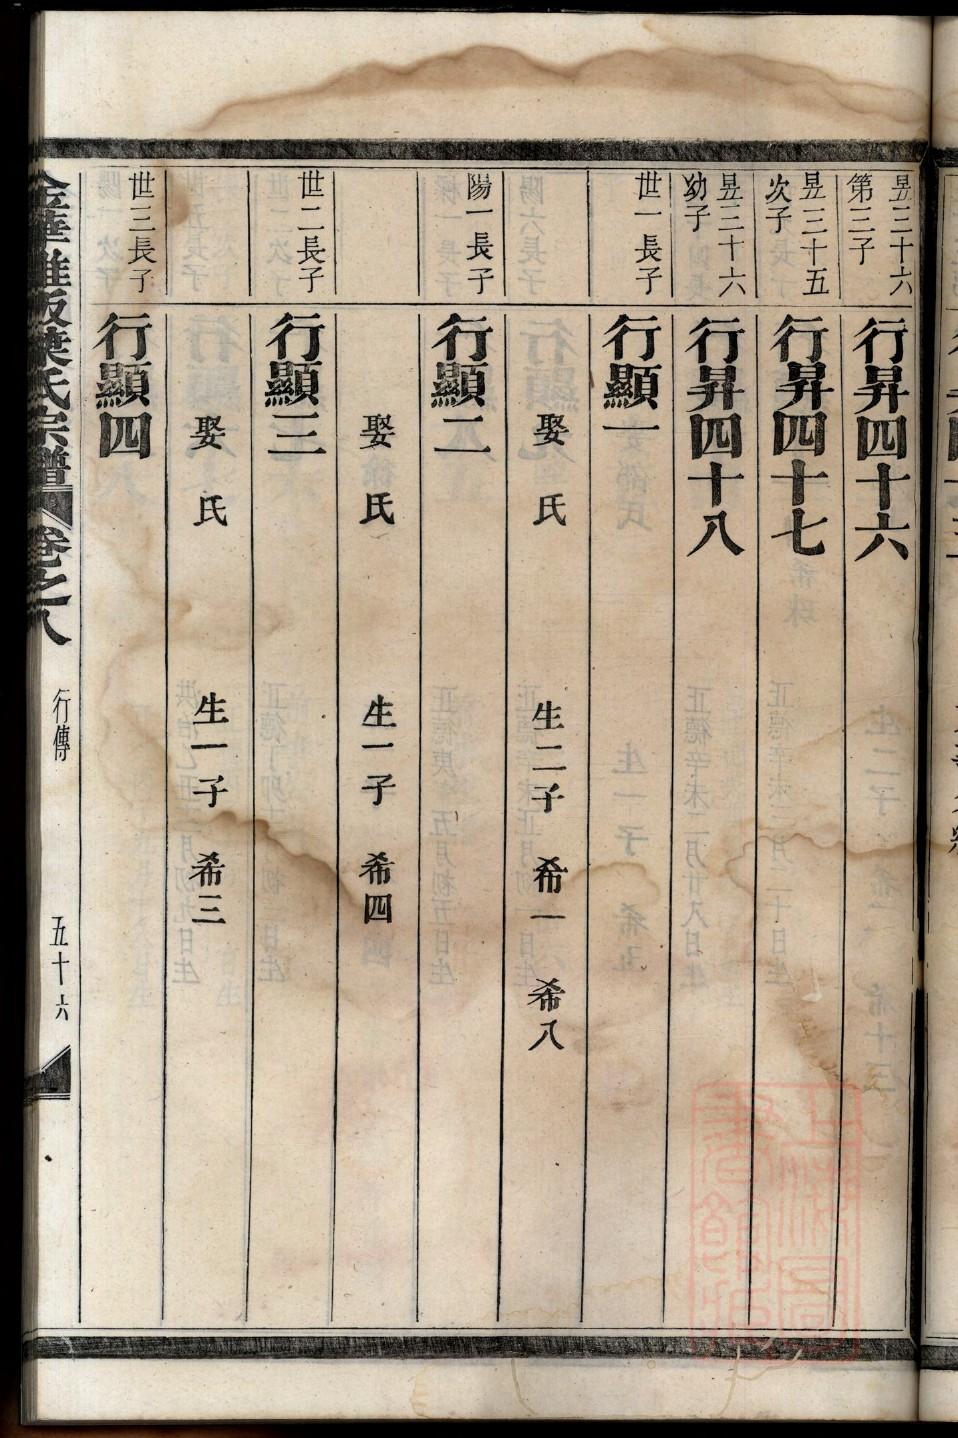 昱三十六
第三子
行昇四十六
昱三十五
次子
行昇四十七
昱三十六
幼子
行昇四十八
世一長子
行顯一
娶　氏　生二子　希一　希八
陽一長子
行顯二
娶　氏　生一子　希四
世二長子
行顯三
娶　氏　生一子　希三
世三長子
行顯四
金華雅畈葉氏宗譜　卷之八　行傳　五十六